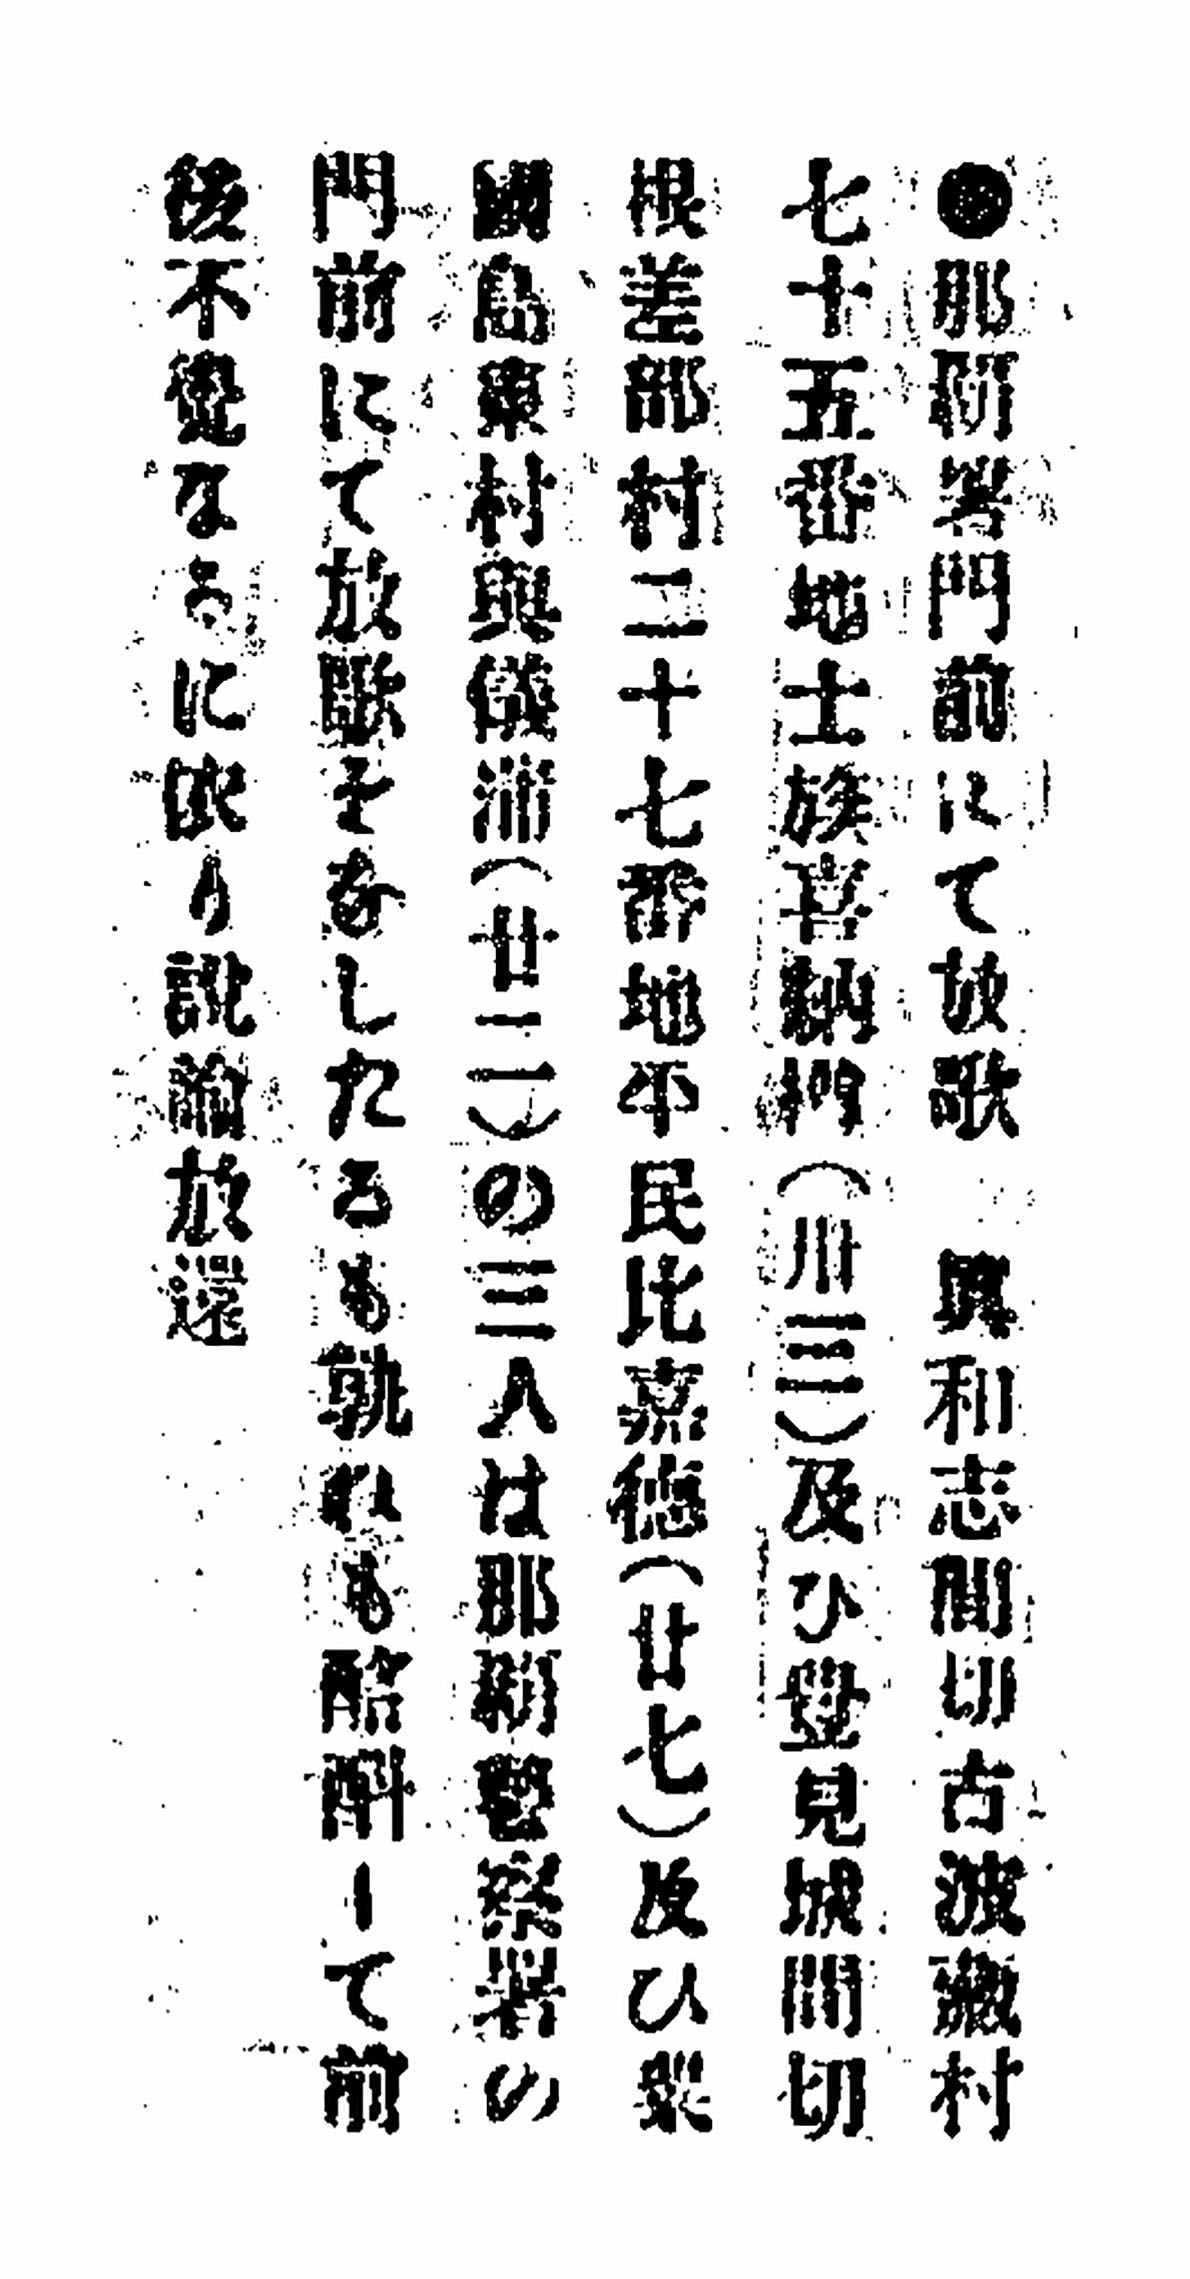 ●那覇署門前にて放歌　眞和志間切古波藏村
七十五番地士族喜納﻿（卅三）及ひ豊見城間切
根差部村二十七番地平民比嘉徳（廿七）及ひ粟
國島東村與儀浦（廿二）の三人は那覇警察署の
門前にて放歌をなしたるも孰れも酩酊して前
後不覺なるに依り説諭放還